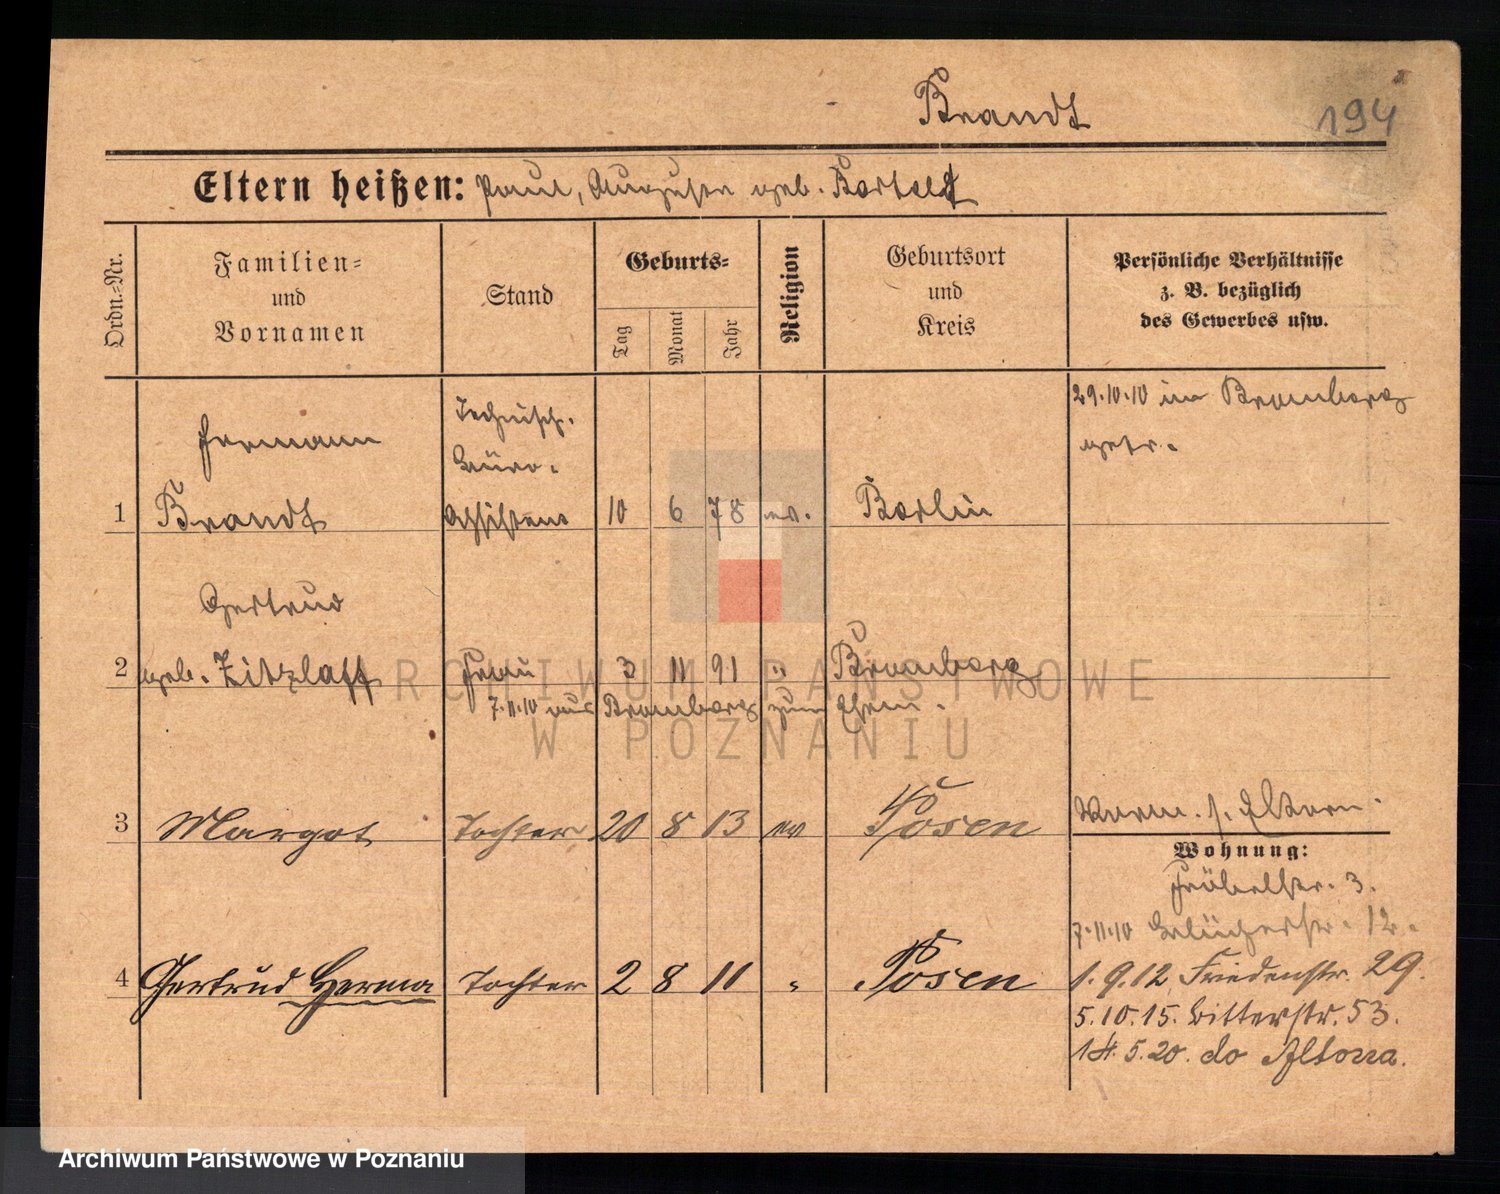 Brandt
194
Eltern heißen: Paul, Auguste geb. Bartelt
Ordn.-Nr.
Familien-
und
Vornamen
Stand
Geburts-
Tag
Monat
Jahr
Religion
Geburtsort
und
Kreis
Persönliche Verhältnisse
z. B. bezüglich
des Gewerbes usw.
29.10.10 in Bromberg
getr.
Hermann
Technisch.
Büro-
1 Brandt Assistent 10 6 78 ev. Berlin
Gertrud
2 geb. Zitzlaff Frau 3 11 91 " Bromberg
7.11.10 aus Bromberg zum Ehem.
3 Margot Tochter 20 8 13 ev Posen
Verm. s. Eltern.
Wohnung:
Fröbelstr. 3.
7.11.10 Blücherstr. 12.
4 Gertrud Herma Tochter 2 8 11 " Posen
1.9.12 Friedenstr. 29.
5.10.15. Ritterstr. 53.
14.5.20. do Altona.
ARCHIWUM PAŃSTWOWE
W POZNANIU
Archiwum Państwowe w Poznaniu